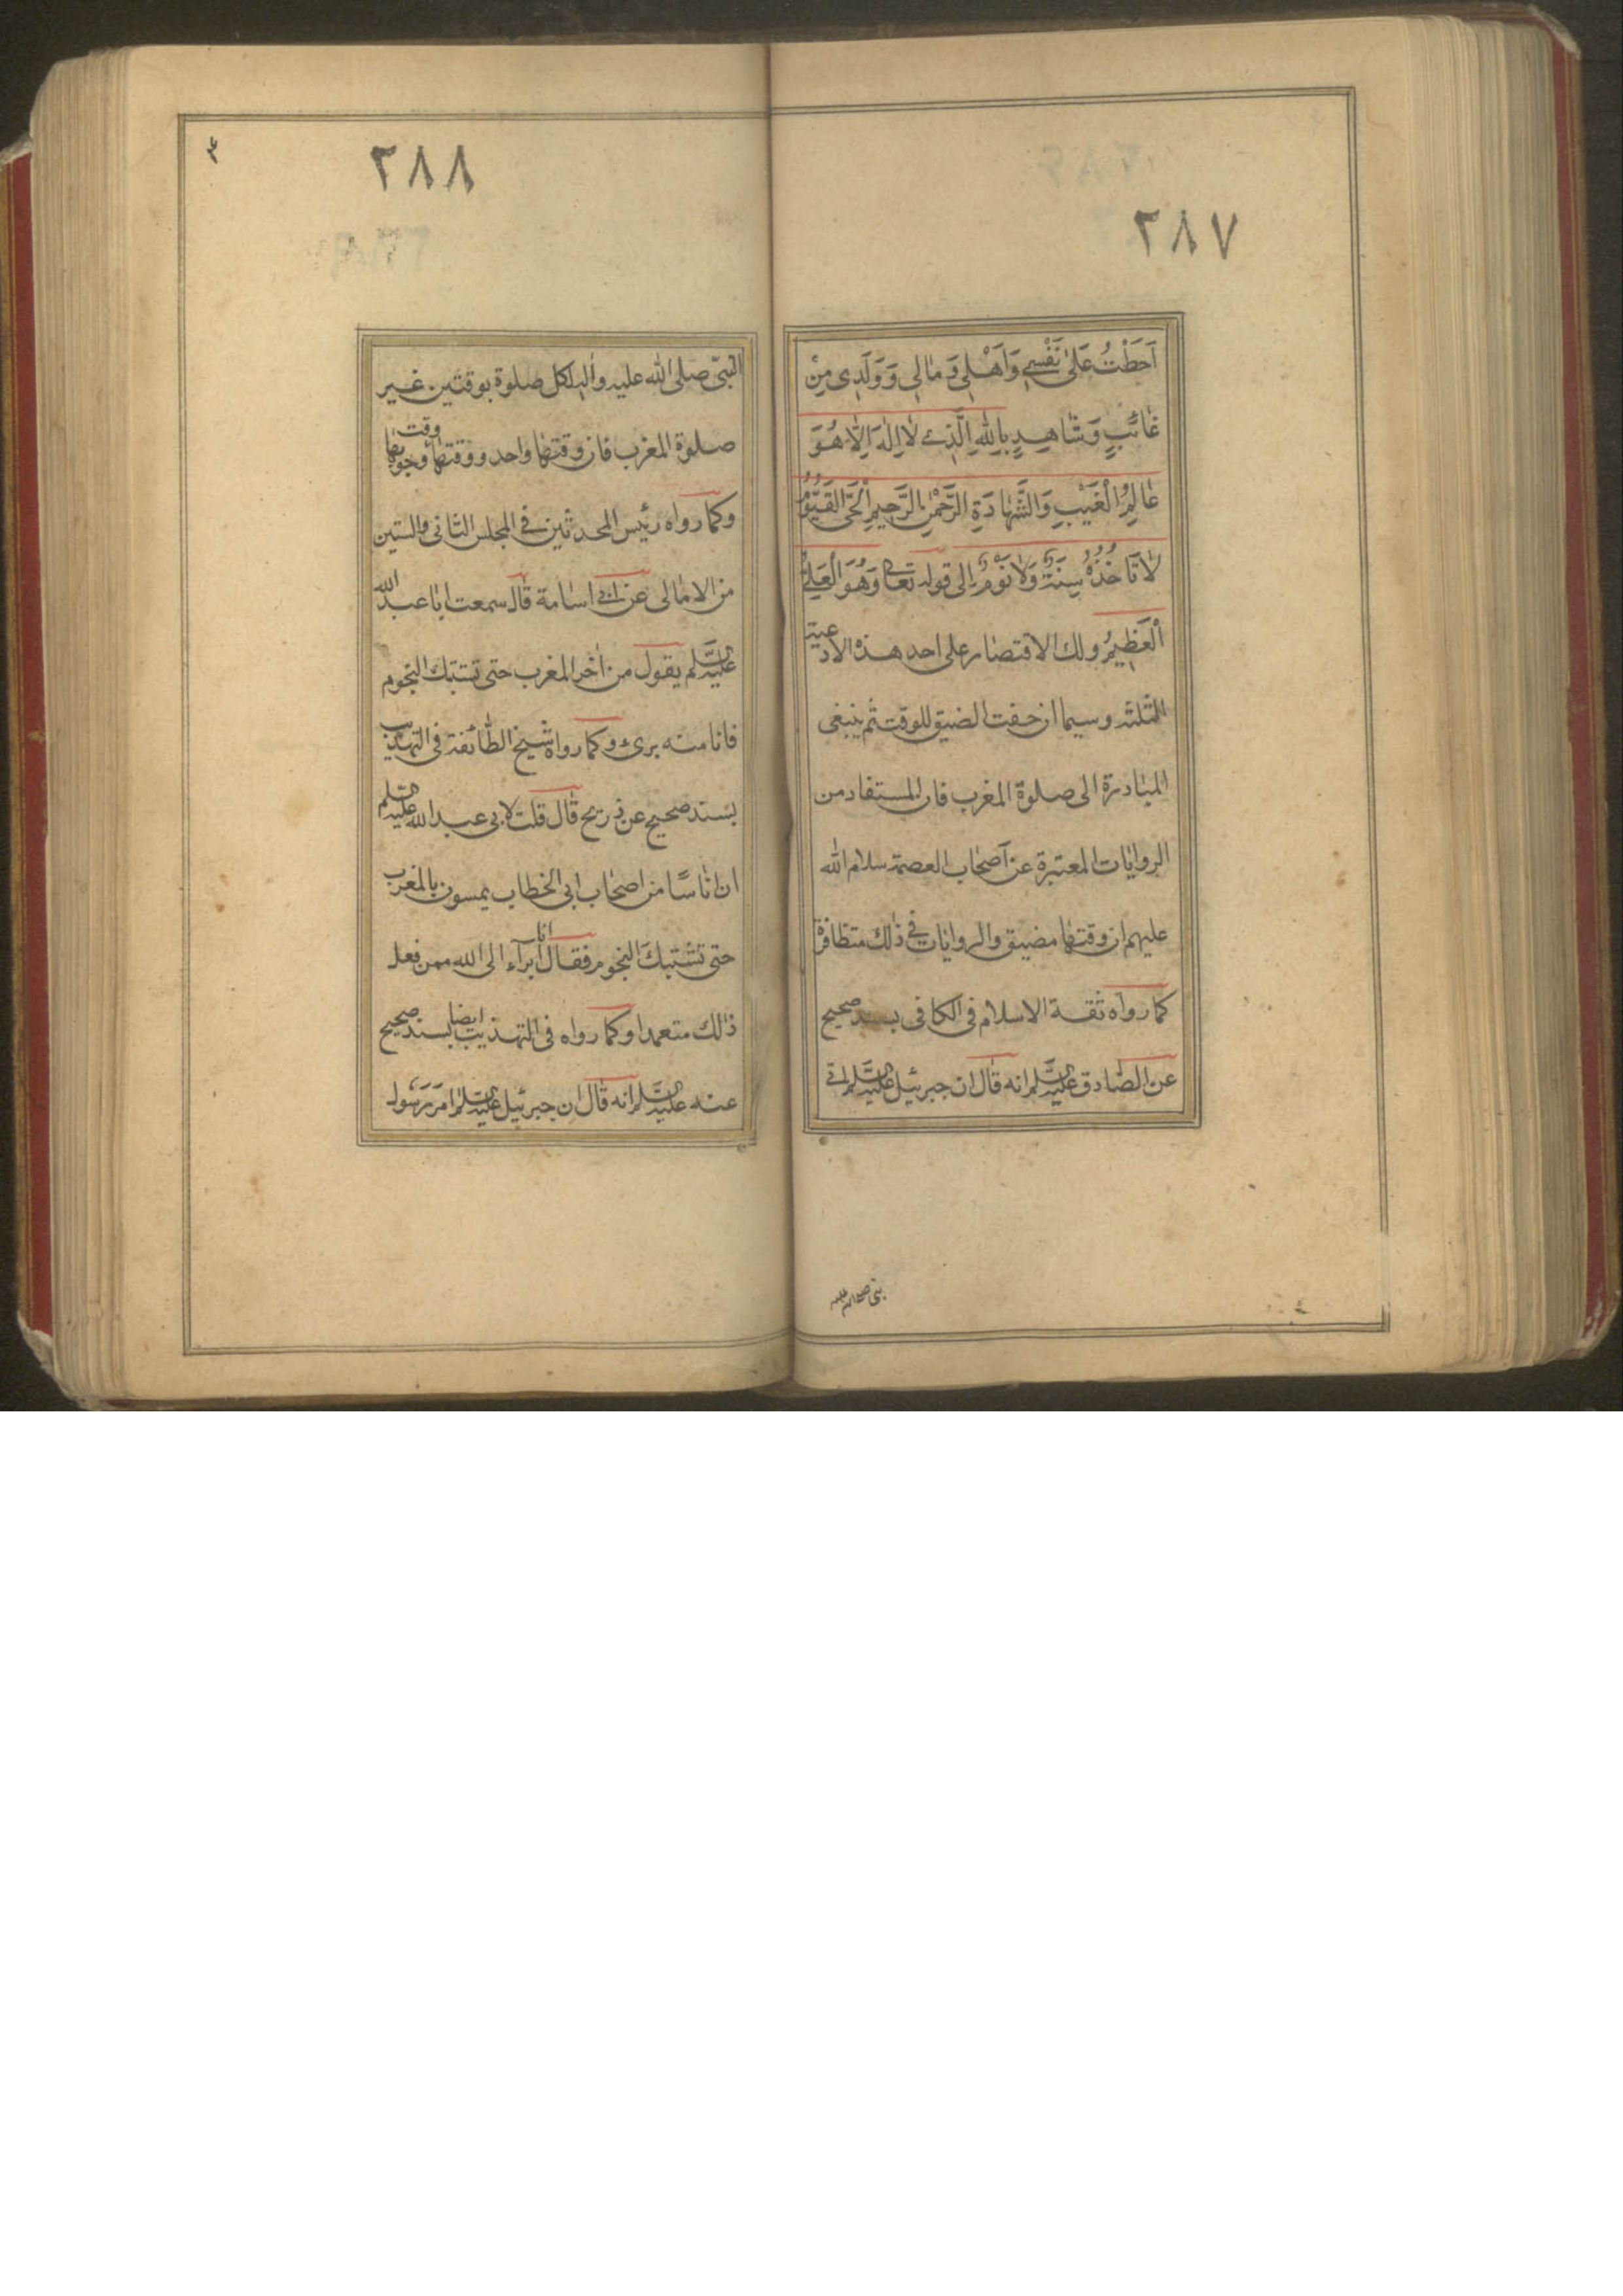 ٢٨٧
اَحَطْتُ عَلىٰ نَفْسِي وَاَهْلِي وَمٰالِي وَوَلَدِي مِنْ
غٰائِبٍ وَشٰاهِدٍ بِاللهِ الَّذِي لٰا اِلٰهَ اِلّٰا هُوَ
عٰالِمُ الْغَيْبِ وَالشَّهٰادَةِ الرَّحْمٰنُ الرَّحِيمُ الْحَيُّ الْقَيُّومُ
لٰا تَاخُذُهُ سِنَةٌ وَلٰا نَوْمٌ الى قوله تعالى وَهُوَ الْعَلِيُّ
الْعَظِيمُ ولك الاقتصار على احد هذه الادعية
الثلثة وسيما ان خفت الضيق للوقت ثم ينبغى
المبٰادرة الى صلوة المغرب فان المستفاد من
الروايٰات المعتبرة عن اصحٰاب العصمة سلام الله
عليهم ان وقتهٰا مضيق والروايٰات في ذٰلك متظافرة
كمٰا روٰاه ثقة الاسلام فى الكافى بسند صحيح
عن الصّٰادق عليه السّلم انه قٰال ان جبرئيل عليه السّلم اتى
بنى صلى الله عليه
٢٨٨
النبىّ صلى الله عليه واله لكل صلوة بوقتين غير
صلوة المغرب فان وقتهٰا واحد ووقتهٰا وقت وجوبهٰا
وكمٰا رواه رئيس المحدثين في المجلس الثٰانى والستين
من الامٰالى عن ابي اسٰامة قٰال سمعت ابٰا عبد الله
عليه السّلم يقول من اخّر المغرب حتى تشتبك النجوم
فانا منه برئ وكمٰا رواه شيخ الطّٰائفة فى التهذيب
بسند صحيح عن ذريح قٰال قلت لابى عبد الله عليه السّلم
ان انٰاسًا من اصحٰاب ابى الخطاب يمسون بالمغرب
حتى تشتبك النجوم فقٰال انا ابرآء الى الله ممن فعل
ذٰلك متعمدا وكمٰا رواه فى التهذيب ايضا بسند صحيح
عنه عليه السّلم انه قٰال ان جبرئيل عليه السّلم امَرَ رَسُول